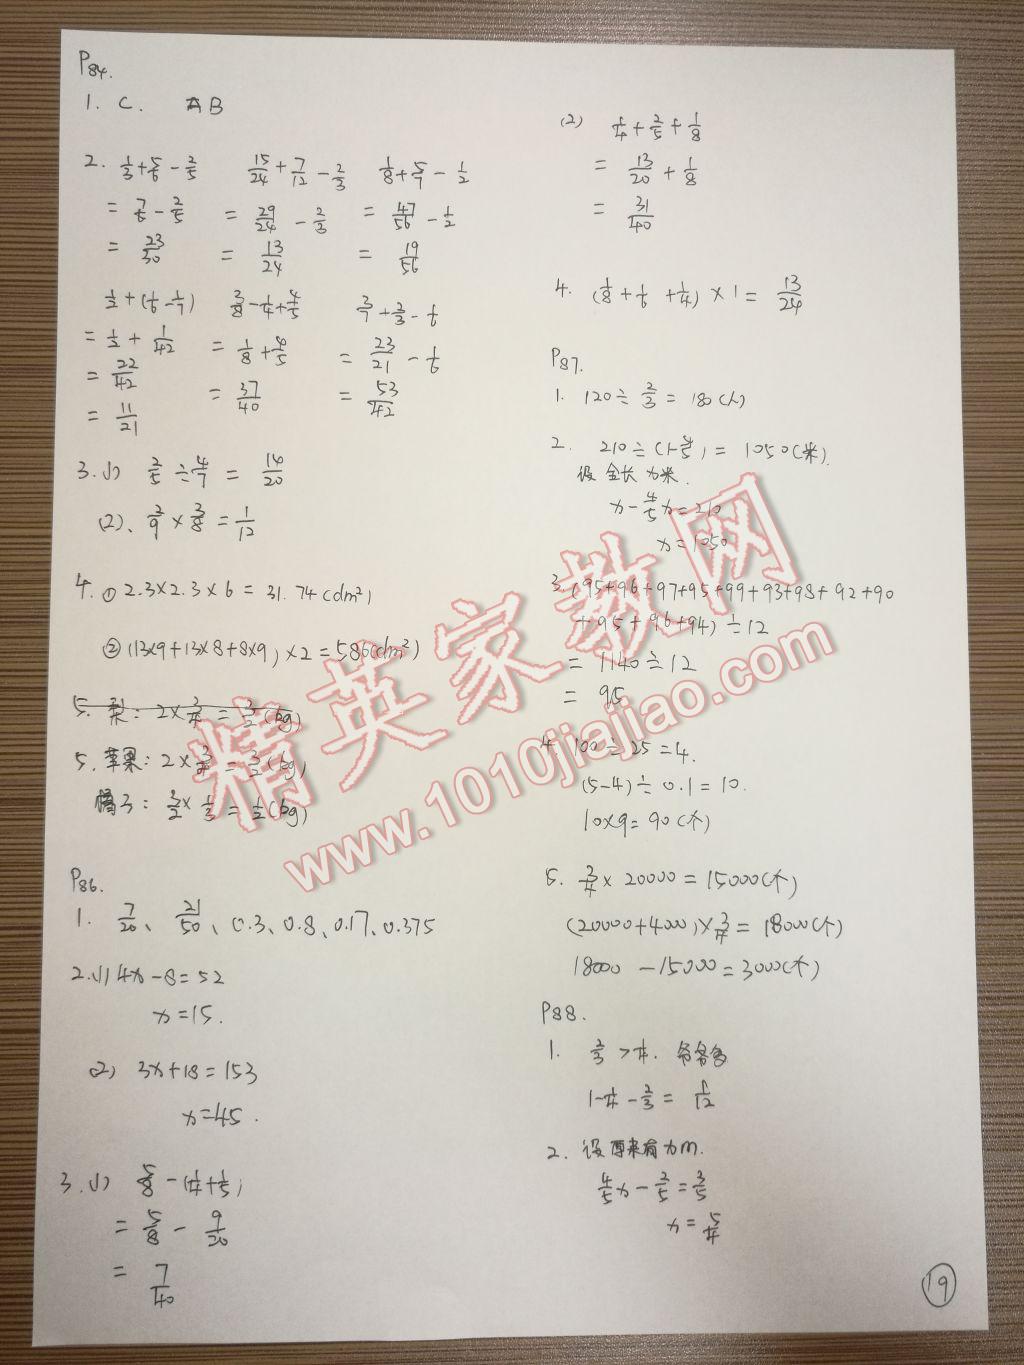 P84.
1. C. AB
2. 1/3+5/6-2/5 15/24+7/12-2/3 1/8+5/7-1/2
=7/6-2/5 =29/24-2/3 =47/56-1/2
=23/30 =13/24 =19/56
1/2+(1/6-1/7) 3/8-1/4+4/5 3/7+2/3-1/6
=1/2+1/42 =1/8+4/5 =23/21-1/6
=22/42 =37/40 =53/42
=11/21
3.(1) 2/5÷4/7=14/20
(2)、2/9×3/8=1/12
4.①2.3×2.3×6=31.74(dm²)
②(13×9+13×8+8×9)×2=586(dm²)
5.梨:2×3/4=3/2(kg)
5.苹果:2×3/4=3/2(kg)
橘子:3/2×1/3=1/2(kg)
P86.
1. 7/20、21/50、0.3、0.8、0.17、0.375
2.(1)4x-8=52
x=15.
(2)3x+18=153
x=45.
3.(1) 5/8-(1/4+1/5)
=5/8-9/20
=7/40
(2) 1/4+2/5+1/8
=13/20+1/8
=31/40
4. (1/8+1/6+1/4)×1=13/24
P87.
1. 120÷2/3=180(人)
2. 210÷(1-4/5)=1050(米).
设全长为x米.
x-4/5x=210
x=1050
3.(95+96+97+95+99+93+98+92+90
+95+96+94)÷12
=1140÷12
=95
4. 100÷25=4.
(5-4)÷0.1=10.
10×9=90(个)
5. 3/4×20000=15000(个)
(20000+4000)×3/4=18000(个)
18000-15000=3000(个)
P88.
1. 2/3>1/4. 爷爷多
1-1/4-2/3=1/12
2. 设原来有xm.
4/5x-2/5=3/5
x=5/4
19
精英家教网
www.1010jiajiao.com